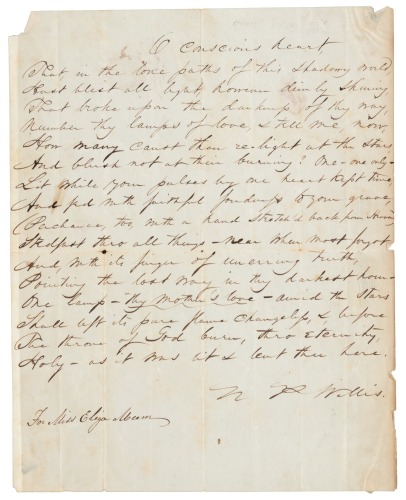 O conscious heart
That in the lone paths of this shadowy world
Hast blest all light, however dimly shining
That broke upon the darkness of thy way,
Number thy lamps of love, & tell me, now,
How many canst thou re-light at the stars
And blush not at their burning? One—one only—
Lit while your pulses by one heart kept time
And fed with faithful fondness to your grave,
Perchance, too, with a hand stretch'd back from Heaven
Stedfast thro all things—near when most forgot
And, with its finger of unerring truth,
Pointing the lost way in thy darkest hour—
One lamp—thy mother's love—amid the stars
Shall lift its pure flame changeless, & before
The throne of God burn, thro Eternity,
Holy—as it was lit & lent thee here.
N P Willis.
For Miss Eliza